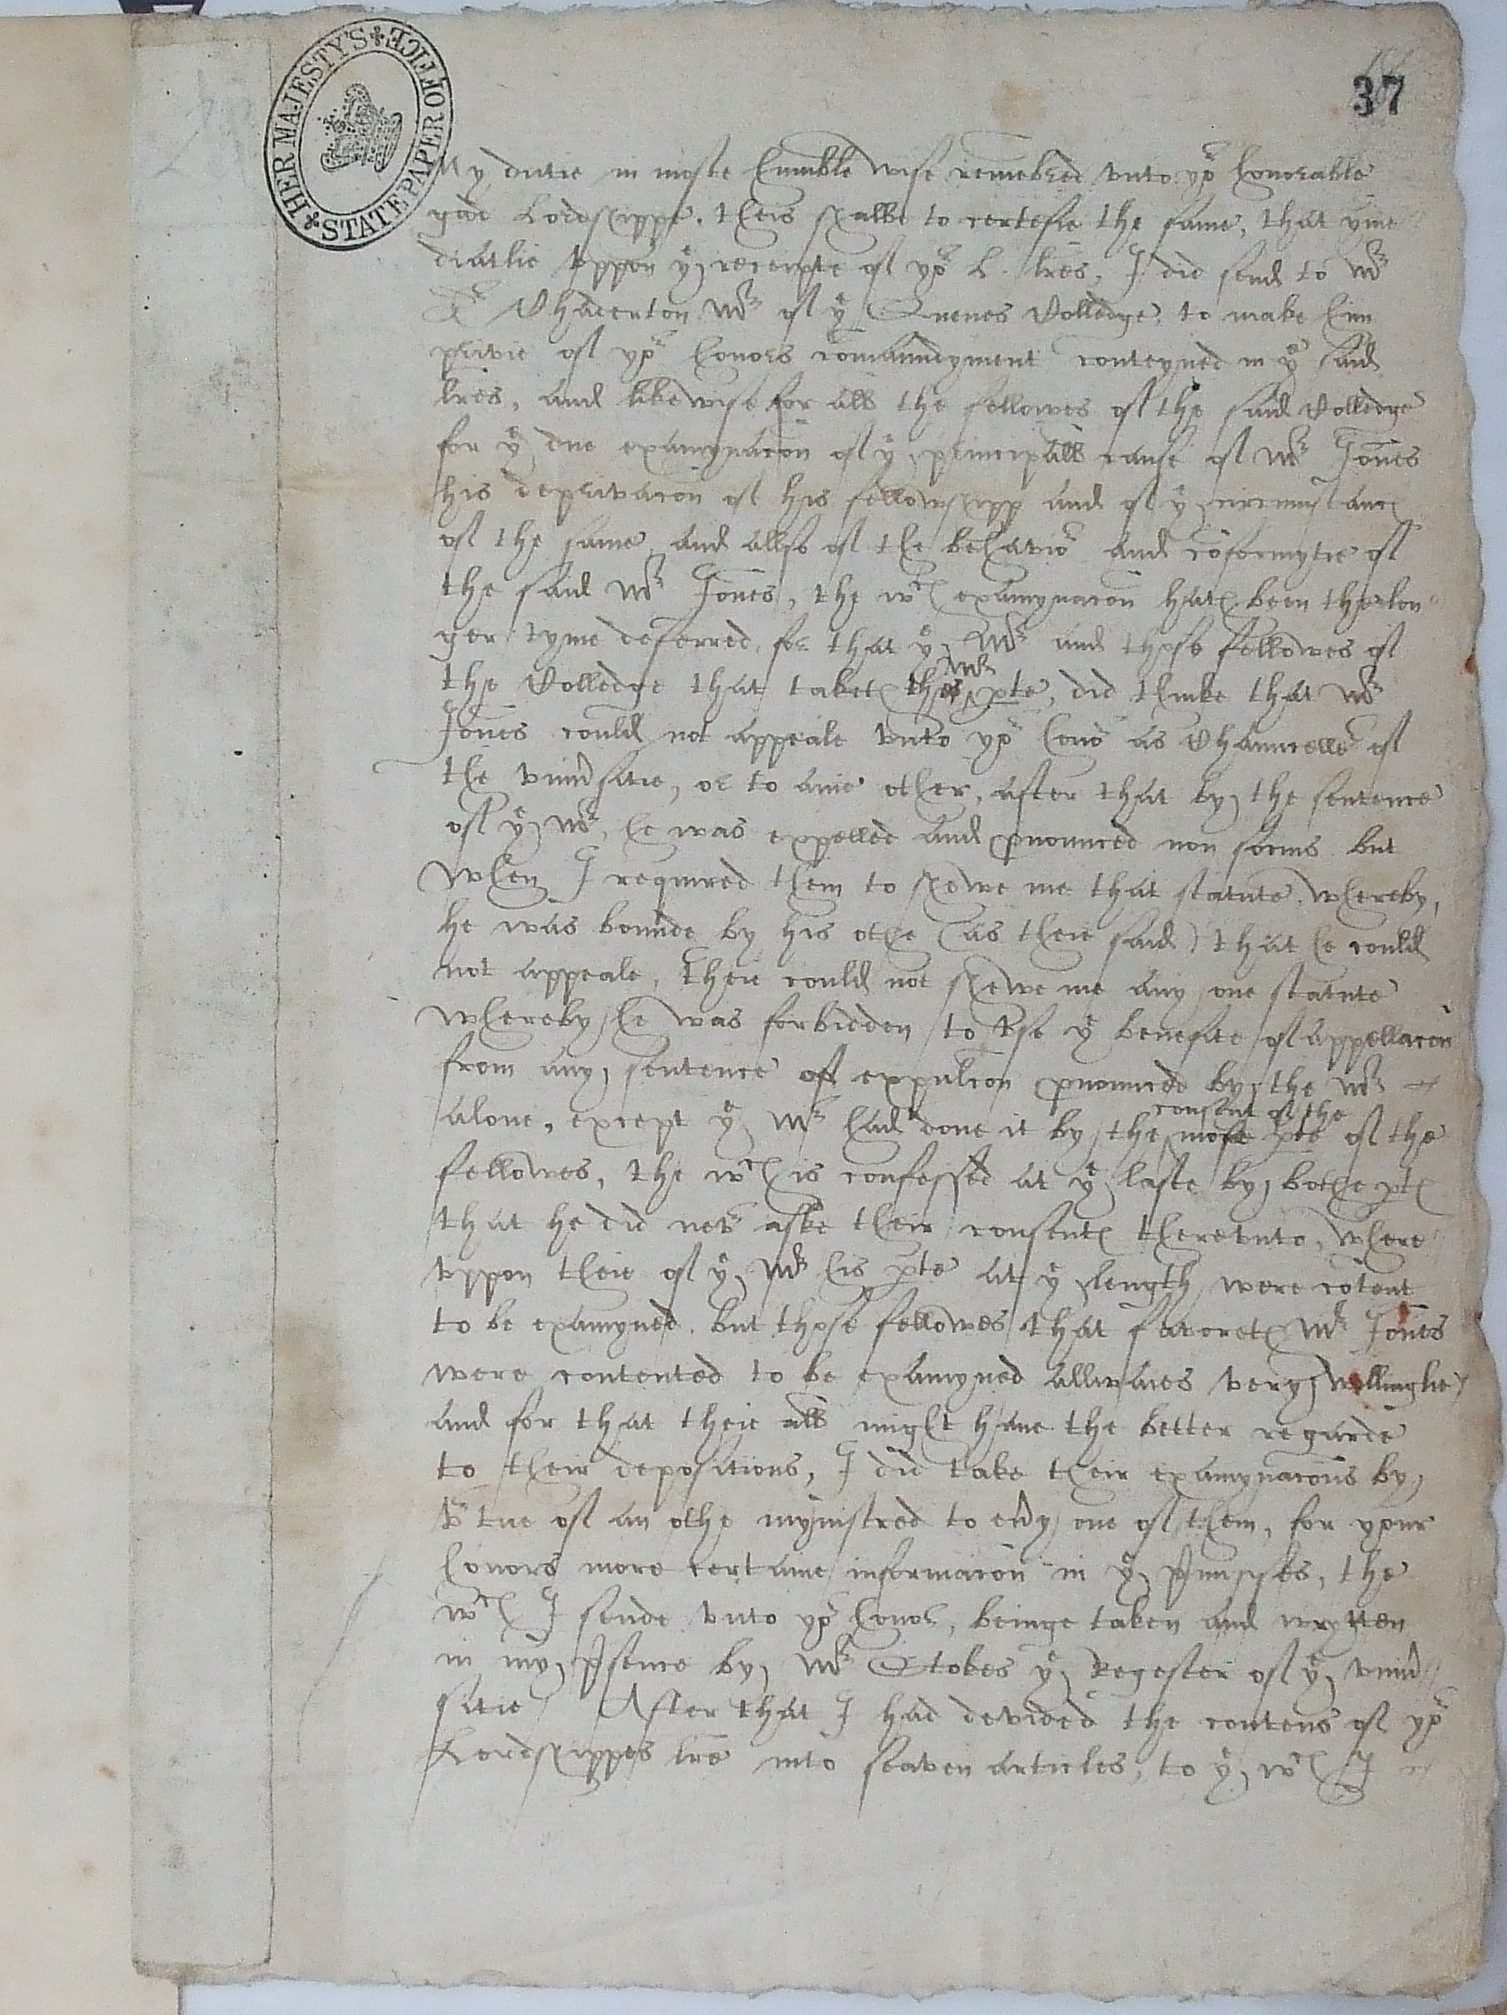 HER MAJESTY'S STATE PAPER OFFICE
37
My dutie in moste humble wise remebred vnto yor honorable
good Lordshippe. theis shalbe to certefie the same, that yme
diatlie vppon ye receipte of yor L. lres, I did send to Mr
Dr Chaderton Mr of ye Quenes Colledge, to make him
privie of yor honors comaundyment conteyned in ye said
lres, and likewise for all the fellowes of the said Colledge
for ye due examynacon of ye principall cause of Mr Jones
his deprivacon of his fellowshipp and of ye circumstances
of the same, and allso of the behavior and coformytie of
the said Mr Jones, the wch examynacon hath been the lon
ger tyme deferred, for that ye Mr and those fellowes of
the Colledge that taketh the Mrs pte, did thinke that Mr
Jones could not appeale vnto yor honor as Chauncellr of
the vniusitie, or to anie other, after that by the sentence
of ye Mr, he was expelled and pnounced non socius but
when I required them to shewe me that statute whereby,
he was bounde by his othe (as their said) that he could
not appeale, their could not shewe me any one statute
whereby he was forbidden to vse ye benefite of appellacon
from any sentence of expulcon pnounced by the Mr
alone, except ye Mr had done it by the consent of the more pte of the
fellowes, the wch is confessed at ye laste by bothe ptes
that he did not aske their consentes therevnto, where
vppon their of ye Mr his pte at ye length were cotent
to be examyned. but those fellowes that favoreth Mr Jones
were contented to be examyned allwaies very willinglie,
and for that their all might have the better regarde
to their depositions, I did take their examynacons by
vrtue of an othe mynistred to eury one of them, for your
honors more certaine informacon in ye pmisses, the
wch I sende vnto yor honor, beinge taken and wrytten
in my psence by Mr Stokes ye Regester of ye vniu
sitie After that I had devided the contens of yor
Lordshippes lre into seaven articles, to ye wch I